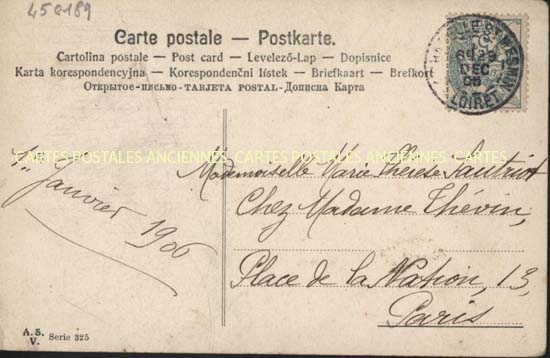 45c189
Carte postale — Postkarte.
Cartolina postale — Post card — Levelező-Lap — Dopisnice
Karta korespondencyjna — Korespondenční lístek — Briefkaart — Brefkort
Открытое-письмо-TARJETA POSTAL-Дописна Карта
LOIRET
DEC
CARTES POSTALES ANCIENNES CARTES POSTALES ANCIENNES CARTES POSTALES ANCIENNES
1er Janvier 1906
Mademoiselle Marie Thérèse
Chez Madame Thévin,
Place de la Nation, 13,
Paris
A. S. V. Serie 325